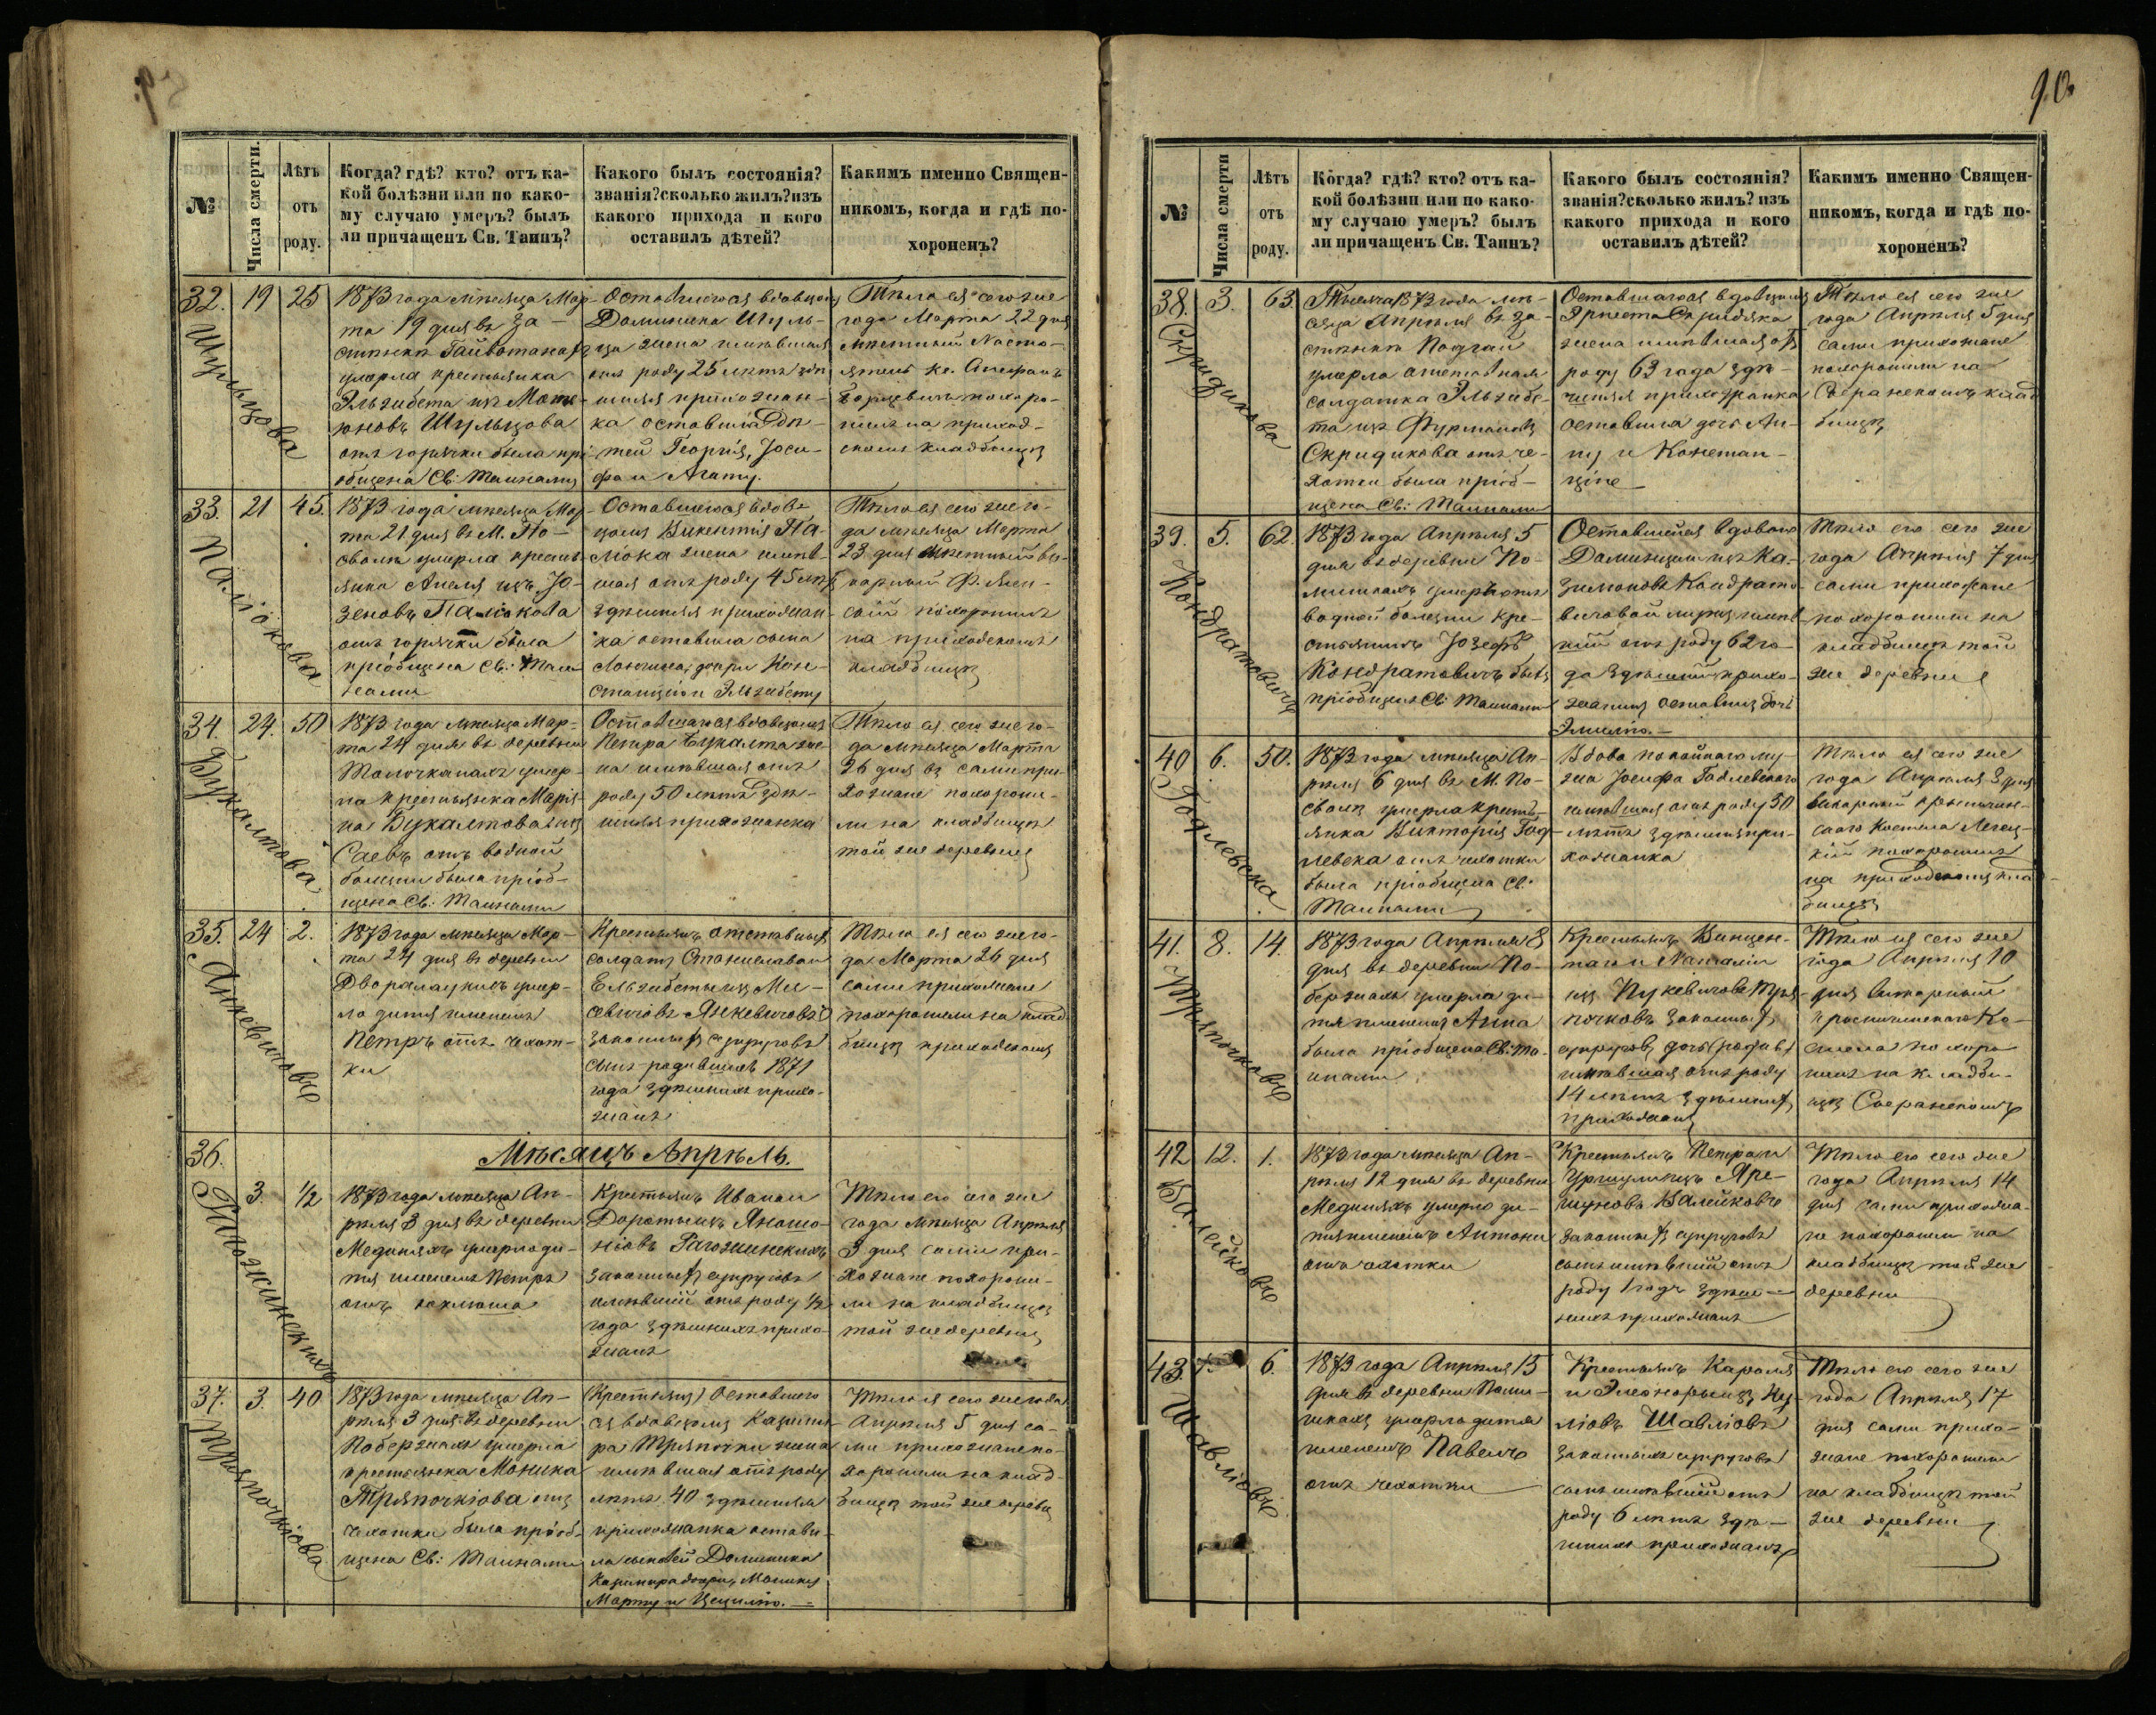 90
№
Числа смерти.
Лѣтъ
отъ
роду.
Когда? гдѣ? кто? отъ ка-
кой болѣзни или по како-
му случаю умеръ? былъ
ли причащенъ Св. Таинъ?
Какого былъ состоянія?
званія? сколько жилъ? изъ
какого прихода и кого
оставилъ дѣтей?
Какимъ именно Священ-
никомъ, когда и гдѣ по-
хороненъ?
32. 19 25
Шульцова
1873 года мѣсяца Мар-
та 19 дня въ За-
стѣнкѣ
умерла крестьянка
Эльзбета изъ
Шульцова
отъ горячки была прі
общена Св: Таинами
Оставшагося вдовцомъ
Доминика Шуль-
ца жена имѣвшая
отъ роду 25 лѣтъ здѣ
шняя прихожан-
ка оставила дѣ-
тей Георгія, Іоси-
фа и Агату.
Тѣло ея сего же
года Марта 22 дня
мѣстный Насто-
ятель кс.
похоро-
нилъ на приход-
скомъ кладбищѣ
33. 21 45.
1873 года мѣсяца Мар-
та 21 дня въ М. По-
сволѣ умерла кресть-
янка Анеля изъ Ю-
зеновъ
отъ горячки была
пріобщена Св: Таи
нами
Оставшагося вдов-
цомъ Викентія Па-
жена имѣв-
шая отъ роду 45 лѣтъ
здѣшняя прихожан-
ка оставила сына
дочери Кон-
станцію и Эльзбету
Тѣло ея сего же го-
да мѣсяца Марта
23 дня мѣстный ви-
карный
похоронилъ
на приходскомъ
кладбищѣ
34. 24. 50
Букалтовой
1873 года мѣсяца Мар-
та 24 дня въ деревни
умер-
ла крестьянка Марія-
на Букалтова изъ
отъ водной
болезни была пріоб-
щена Св: Таинами
Оставшагося вдовцомъ
Петра Букалта же-
на имѣвшая отъ
роду 50 лѣтъ здѣ-
шняя прихожанка
Тѣло ея сего же го-
да мѣсяца Марта
26 дня сами при-
хожане похорони-
ли на кладбищѣ
той же деревни
35. 24 2.
Янкевичовъ
1873 года мѣсяца Мар-
та 24 дня въ деревни
умер-
ло дитя именемъ
Петръ отъ чахот-
ки
Крестьянъ отставныхъ
солдатъ Станиславаи
Ельзбеты изъ
Янкевичовъ
законныхъ супруговъ
сынъ родившійся 1871
года здѣшнихъ прихо-
жанъ
Тѣло ея сего же го-
да Марта 26 дня
сами прихожане
похоронили на клад
бищѣ приходскомъ
Мѣсяцъ Апрѣль.
36. 3. ½
1873 года мѣсяца Ап-
рѣля 3 дня въ деревни
умерло ди-
тя именемъ Петръ
отъ коклюша
Крестьянъ Иванаи
Доротыизъ
законныхъ супруговъ
имѣвшій отъ роду ½
года здѣшнихъ прихо-
жанъ
Тѣло его сего же
года мѣсяца Апрѣля
3 дня сами при-
хожане похорони-
ли на кладбищѣ
той же деревни
37. 3. 40
Тряпочкіова
1873 года мѣсяца Ап-
рѣля 3 дня въ деревни
умерла
крестьянка Моника
Тряпочкіова отъ
чахотки была пріоб-
щена Св: Таинами
(Крестьянъ) Оставшаго
ся вдовцомъ Казими-
ра Тряпочки жена
имѣвшая отъ роду
лѣтъ 40 здѣшняя
прихожанка остави-
ла сыновей Доминика
Казимира дочери, Монику
Марту и Цецилію.
Тѣло ея сего же года
Апрѣля 5 дня са-
ми прихожане по-
хоронили на клад-
бищѣ той же деревни
№
Числа смерти
Лѣтъ
отъ
роду.
Когда? гдѣ? кто? отъ ка-
кой болѣзни или по како-
му случаю умеръ? былъ
ли причащенъ Св. Таинъ?
Какого былъ состоянія?
званія? сколько жилъ? изъ
какого прихода и кого
оставилъ дѣтей?
Какимъ именно Священ-
никомъ, когда и гдѣ по-
хороненъ?
38. 3. 63
Скридикова
Тысяча 1873 года мѣ-
сяца Апрѣля въ за-
стѣнкѣ
умерла отставная
солдатка Эльзбе-
та изъ
Скридикова отъ ча-
хотки была пріоб-
щена Св: Таинами
Оставшагося вдовцомъ
Эрнеста
жена имѣвшая отъ
роду 63 года здѣ-
шняя прихожанка
оставила дочь Ан-
ну и Констан-
цію
Тѣло ея сего же
года Апрѣля 5 дня
сами прихожане
похоронили на
клад
бищѣ
39. 5. 62.
Кондратовичъ
1873 года Апрѣля 5
дня въ деревни По-
умеръ отъ
водной болезни кре-
стьянинъ Юзефъ
Кондратовичъ былъ
пріобщенъ Св: Таинами
Оставшейся вдовою
Доминціи изъ Ка-
Кондрато-
вичовой мужъ имѣв
шій отъ роду 62 го-
да здѣшній прихо-
жанинъ оставилъ дочь
Эмилію.
Тѣло его сего же
года Апрѣля 7 дня
сами прихожане
похоронили на
кладбищѣ той
же деревни
40 6. 50.
Годлевска
1873 года мѣсяца Ап-
рѣля 6 дня въ М. По-
сволѣ умерла кресть-
янка Викторія Год-
левска отъ чахотки
была пріобщена Св:
Таинами
Вдова покойнаго му-
жа Іосифа Годлевскаго
имѣвшая отъ роду 50
лѣтъ здѣшняя при-
хожанка
Тѣло ея сего же
года Апрѣля 8 дня
викарный
скаго костела
похоронилъ
на приходскомъ клад-
бищѣ
41. 8. 14.
1873 года Апрѣля 8
дня въ деревни По-
умерла ди-
тя именемъ Анна
была пріобщена Св: Та-
инами
Крестьянъ Винцен-
таго и Наталіи
изъ
законныхъ
супруговъ дочь
имѣвшая отъ роду
14 лѣтъ здѣшнихъ
прихожанъ
Тѣло ея сего же
года Апрѣля 10
дня викарный
Ко-
стела похоро
нилъ на кладби-
щѣ
42 12. 1.
Валейковъ
1873 года мѣсяца Ап-
рѣля 12 дня въ деревни
умерло ди-
тя именемъ Антони
отъ чахотки
Крестьянъ Петраи
Уршули изъ
Валейковъ
законныхъ супруговъ
сынъ имѣвшій отъ
роду 1 годъ здѣш-
нихъ прихожанъ
Тѣло его сего же
года Апрѣля 14
дня сами прихожа-
не похоронили на
кладбищѣ той же
деревни
43 6.
Шавліовъ
1873 года Апрѣля 15
дня въ деревни
умерло дитя
именемъ Павелъ
отъ чахотки
Крестьянъ Кароля
и Элеоноры изъ
Шавліовъ
законныхъ супруговъ
сынъ имѣвшій отъ
роду 6 лѣтъ здѣ-
шнихъ прихожанъ
Тѣло его сего же
года Апрѣля 17
дня сами прихо-
жане похоронили
на кладбищѣ той
же деревни